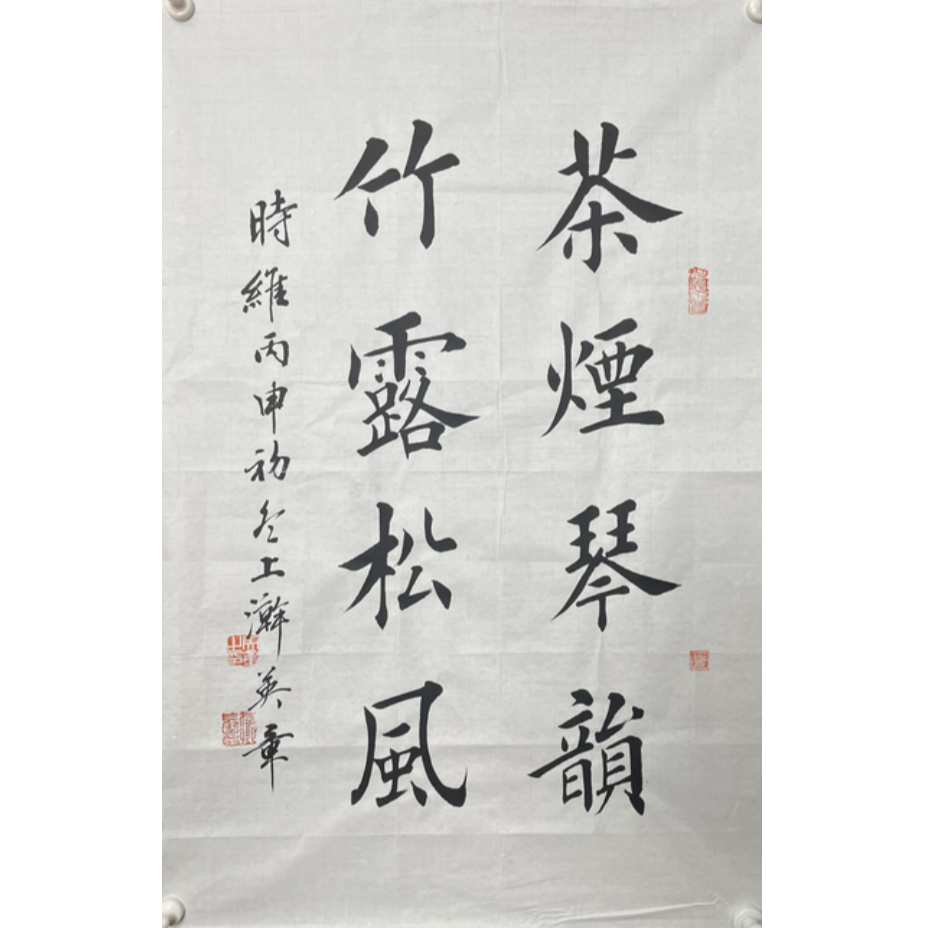 茶煙琴韻
竹露松風
時維丙申初冬上澣英章